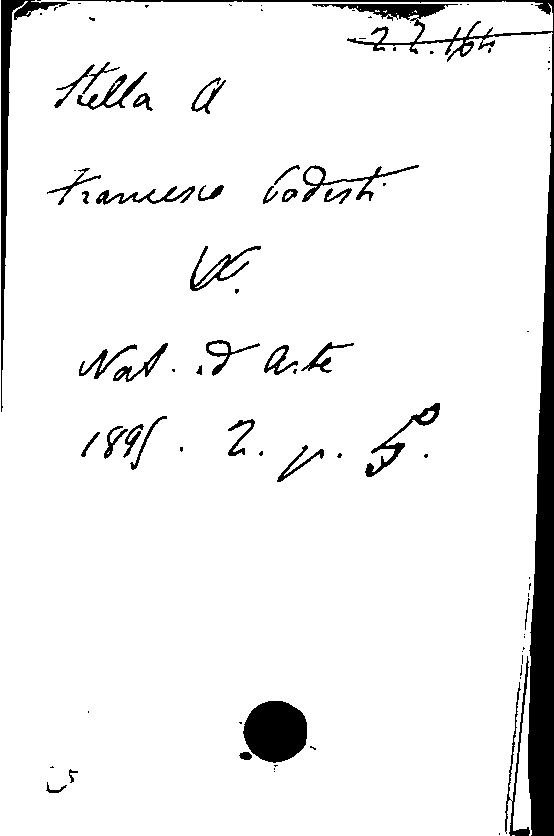 2.2.164
Stella A
Francesco Podesti
W.
Nat. ed Arte
1895. 2. p. 5.